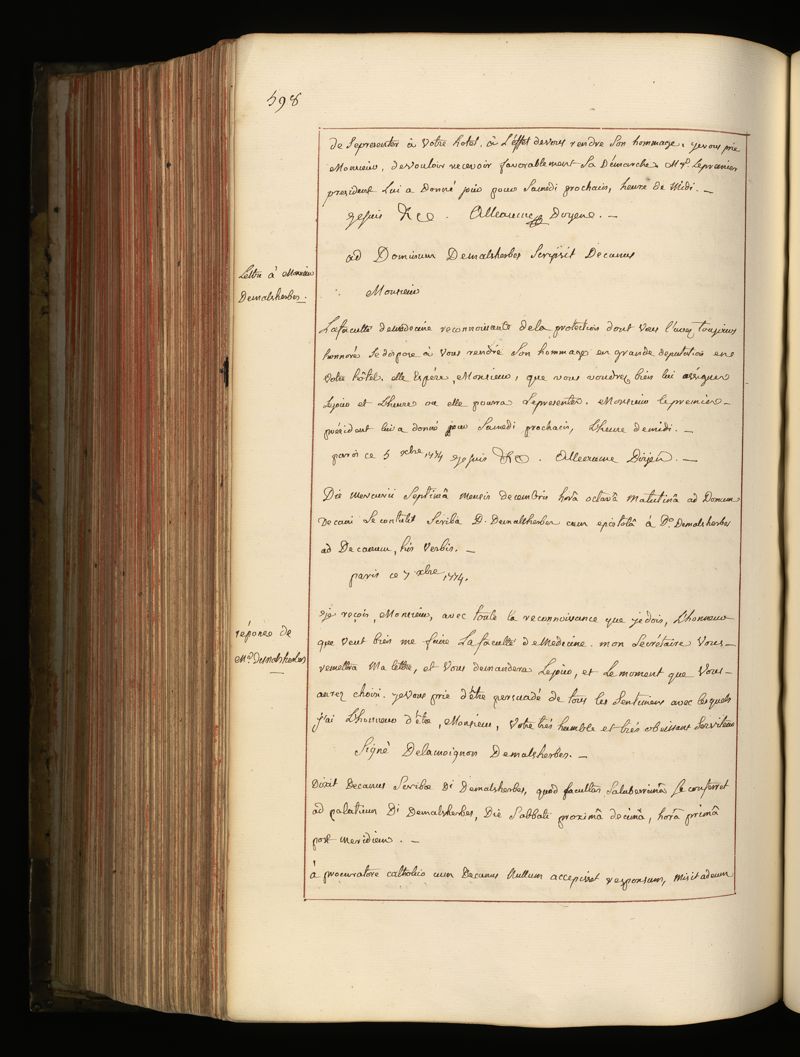 598
de Se presenter à Votre hotel. à L'éffet de vous rendre Son hommage. je vous prie
Monsieur, de vouloir recevoir favorablement Sa Démarche. Mr. Le premier
president Lui a Donné jour pour Samedi prochain, heure de Midi. —
je suis &c. Alleaume Doyen. —
ad Dominum Demalsherbes Scripsit Decanus
Lettre à Monsieur
Demalsherbes.
Monsieur
La faculté de medecine reconnoissante de la protection dont Vous l'avez toujours
honnoré Se dispose à Vous rendre Son hommage en grande deputation en
Votre hôtel. elle Espére, Monsieur, que vous voudrez bien lui assigner
Le jour et L'heure ou elle pourra Se presenter. Monsieur le premier —
président lui a donné jour Samedi prochain, L'heure de midi. —
paris ce 5 xbre 1774 je suis &c. Alleaume Doyen. —
Die Mercurii Septimâ mensis decembris horâ octavâ matutinâ ad Domum
Decani Se contulit Scriba D. Demalsherbes cum epistolâ à Do. Demalsherbes
ad Decanum, his Verbis. —
paris ce 7 xbre 1774.
réponse de
Mr. Demalsherbes
je reçois, Monsieur, avec toute la reconnoissance que je dois, L'honneur
que Veut bien me faire La faculté de Medecine. mon Secrétaire Vous —
remettra Ma lettre, et Vous demandera Le jour, et Le moment que Vous —
aurez choisi. je Vous prie d'être persuadé de tous les Sentimens avec lesquels
j'ai L'honneur d'être, Monsieur, Votre très humble et très obeissant Serviteur
Signé Delamoignon Demalsherbes. —
Dixit Decanus Scribæ Di Demalsherbes, quod facultas Saluberrima Se conferret
ad palatium Di Demalsherbes, Die Sabbati proximâ decimâ, horâ primâ
post meridiem. —
à procuratore catholico cum Decanus Nullum accepisset responsum, misit ad eum